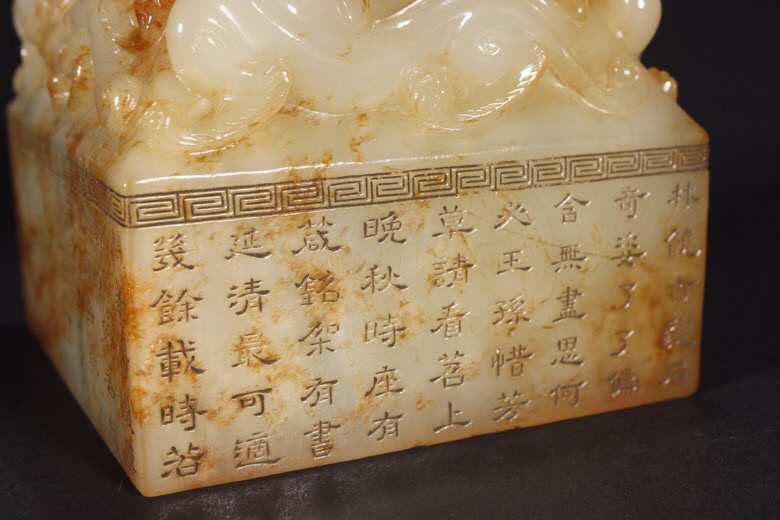 林餞古貌衣
奇姿了了偏
含無盡思何
必王孫惜芳
草請看苕上
晚秋時座有
箴銘架有書
延清最可適
幾餘載時菭